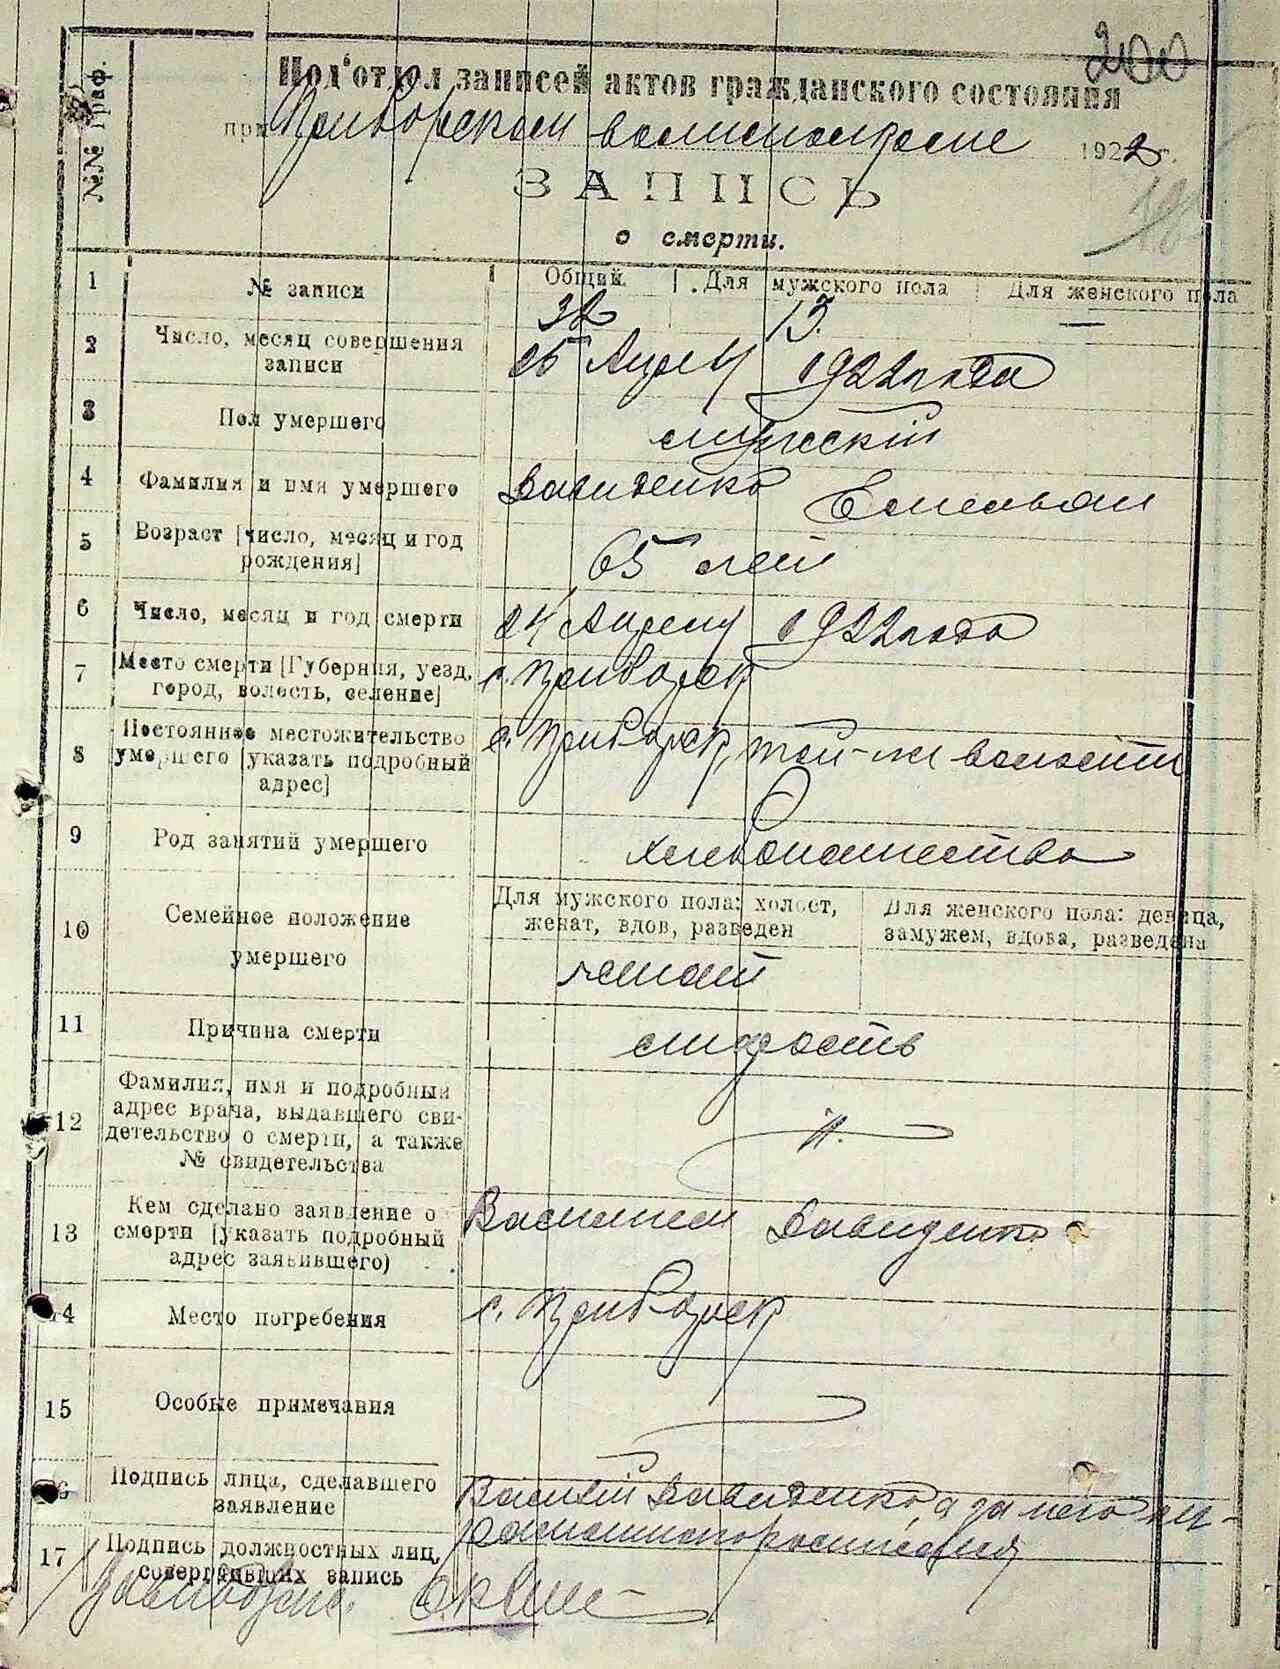 200
№№ граф.
Под'отдел записей актов гражданского состояния
при Приворском волисполкоме 1922 г.
ЗАПИСЬ
о смерти.
1 № записи Общий Для мужского пола Для женского пола
32 13. —
2 Число, месяц совершения записи 25 Апреля 1922 года
3 Пол умершего мужский
4 Фамилия и имя умершего Давиденко Емельян
5 Возраст [число, месяц и год рождения] 65 лет
6 Число, месяц и год смерти 24 Апреля 1922 года
7 Место смерти [Губерния, уезд, город, волость, селение] с. Приворск
8 Постоянное местожительство умершего [указать подробный адрес] с. Приворск, той-же волости
9 Род занятий умершего хлебопашество
10 Семейное положение умершего Для мужского пола: холост, женат, вдов, разведен Для женского пола: девица, замужем, вдова, разведена
женат
11 Причина смерти старость
12 Фамилия, имя и подробный адрес врача, выдавшего свидетельство о смерти, а также № свидетельства
13 Кем сделано заявление о смерти [указать подробный адрес заявившего) Василием Давиденко
14 Место погребения с. Приворск
15 Особые примечания
16 Подпись лица, сделавшего заявление Василий Давиденко, а за него не-
грамотного росписался
17 Подпись должностных лиц, совершивших запись